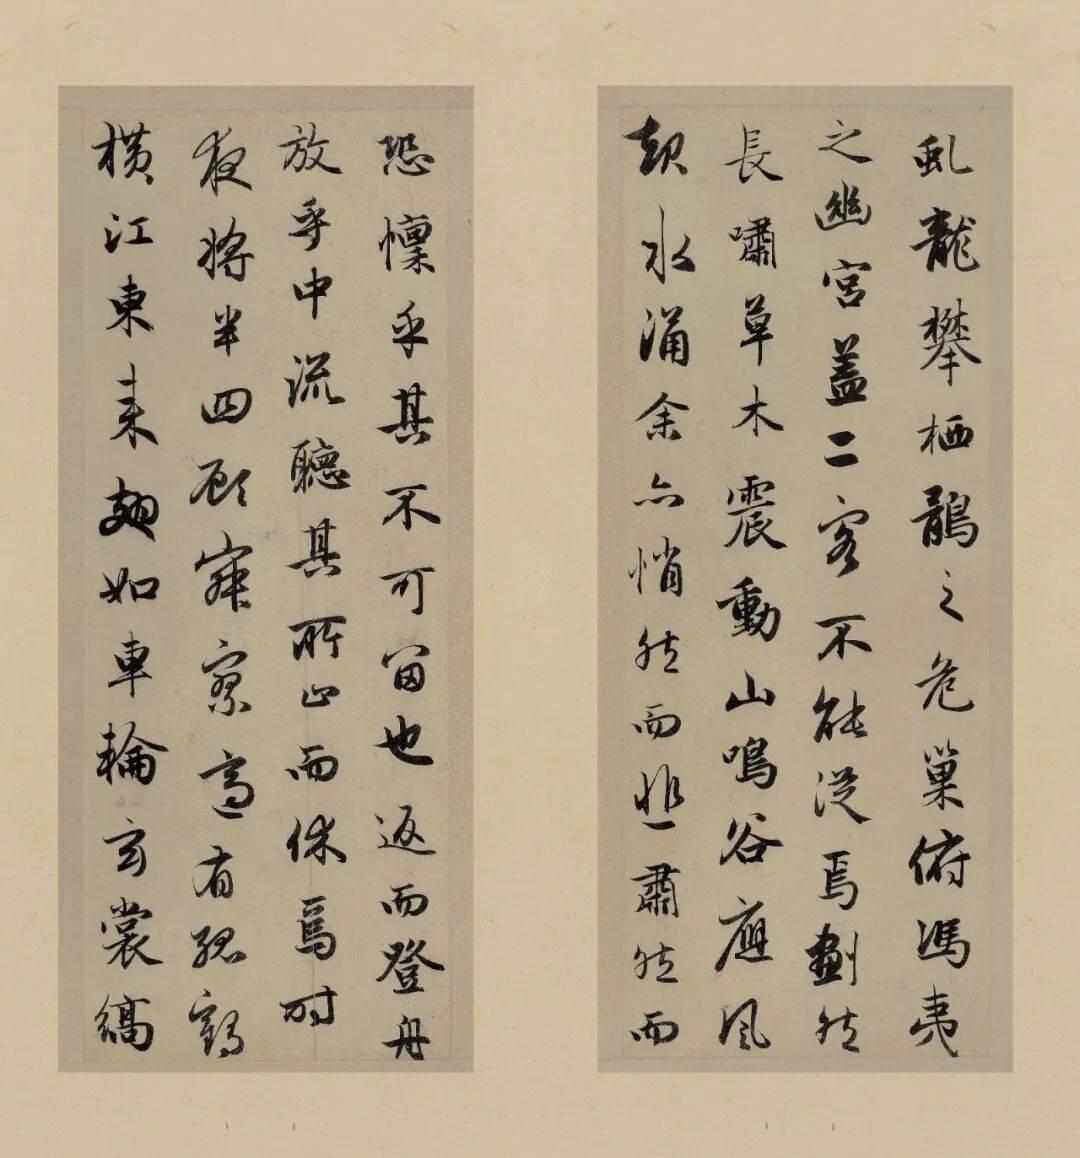 虬龍攀栖鶻之危巢俯馮夷
之幽宮盖二客不能從焉劃然
長嘯草木震動山鳴谷應風
起水涌余亦悄然而悲肅然而
恐懔乎其不可留也返而登舟
放乎中流聽其所止而休焉時
夜將半四顧寂寥適有孤鶴
橫江東來翅如車輪玄裳縞